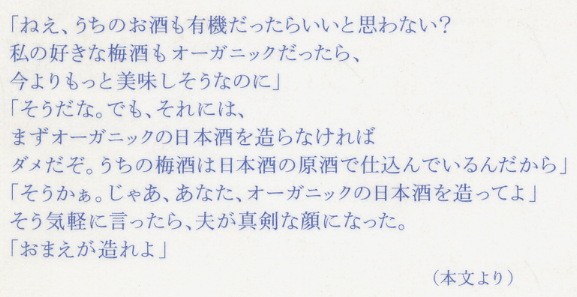 「ねえ、うちのお酒も有機だったらいいと思わない？
私の好きな梅酒もオーガニックだったら、
今よりもっと美味しそうなのに」
「そうだな。でも、それには、
まずオーガニックの日本酒を造らなければ
ダメだぞ。うちの梅酒は日本酒の原酒で仕込んでいるんだから」
「そうかぁ。じゃあ、あなた、オーガニックの日本酒を造ってよ」
そう気軽に言ったら、夫が真剣な顔になった。
「おまえが造れよ」
（本文より）